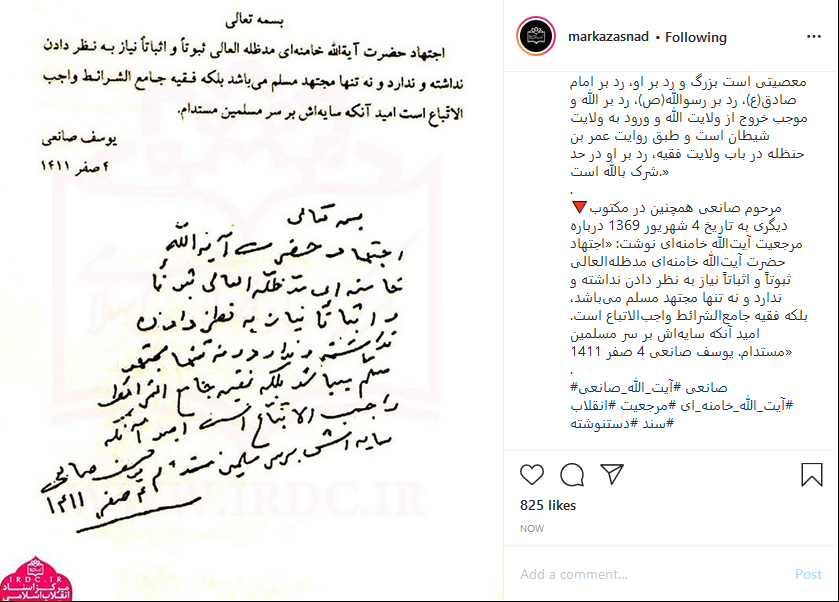 بسمه تعالی
اجتهاد حضرت آیةالله خامنه‌ای مدظله العالی ثبوتاً و اثباتاً نیاز به نظر دادن
نداشته و ندارد و نه تنها مجتهد مسلم می‌باشد بلکه فقیه جامع الشرائط واجب
الاتباع است امید آنکه سایه‌اش بر سر مسلمین مستدام.
یوسف صانعی
۴ صفر ۱۴۱۱
بسمه تعالی
اجتهاد حضرت آیة الله
خامنه ای مدظله العالی ثبوتاً
و اثباتاً نیاز به نظر دادن
نداشته و ندارد و نه تنها مجتهد
مسلم میباشد بلکه فقیه جامع الشرائط
واجب الاتباع است امید آنکه
سایه اش بر سر مسلمین مستدام یوسف صانعی
۴ صفر ۱۴۱۱
WWW.IRDC.IR
IRDC.IR
مرکز اسناد
انقلاب اسلامی
markazasnad • Following
معصیتی است بزرگ و رد بر او، رد بر امام
صادق(ع)، رد بر رسوالله(ص)، رد بر الله و
موجب خروج از ولایت الله و ورود به ولایت
شیطان است و طبق روایت عمر بن
حنظله در باب ولایت فقیه، رد بر او در حد
شرک بالله است.»
.
🔻مرحوم صانعی همچنین در مکتوب
دیگری به تاریخ 4 شهریور 1369 درباره
مرجعیت آیت‌الله خامنه‌ای نوشت: «اجتهاد
حضرت آیت‌الله خامنه‌ای مدظله‌العالی
ثبوتاً و اثباتاً نیاز به نظر دادن نداشته و
ندارد و نه تنها مجتهد مسلم می‌باشد،
بلکه فقیه جامع‌الشرائط واجب‌الاتباع است.
امید آنکه سایه‌اش بر سر مسلمین
مستدام. یوسف صانعی 4 صفر 1411»
.
#صانعی #آیت_الله_صانعی
#آیت_الله_خامنه_ای #مرجعیت #انقلاب
#سند #دستنوشته
825 likes
NOW
Add a comment...
Post